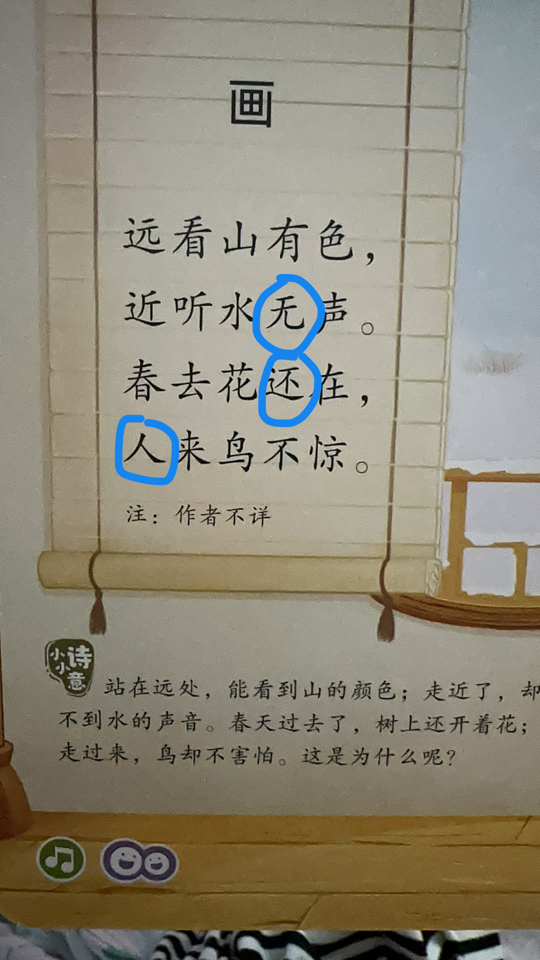 画
远看山有色，
近听水无声。
春去花还在，
人来鸟不惊。
注：作者不详
小小诗意
站在远处，能看到山的颜色；走近了，却
不到水的声音。春天过去了，树上还开着花；
走过来，鸟却不害怕。这是为什么呢？